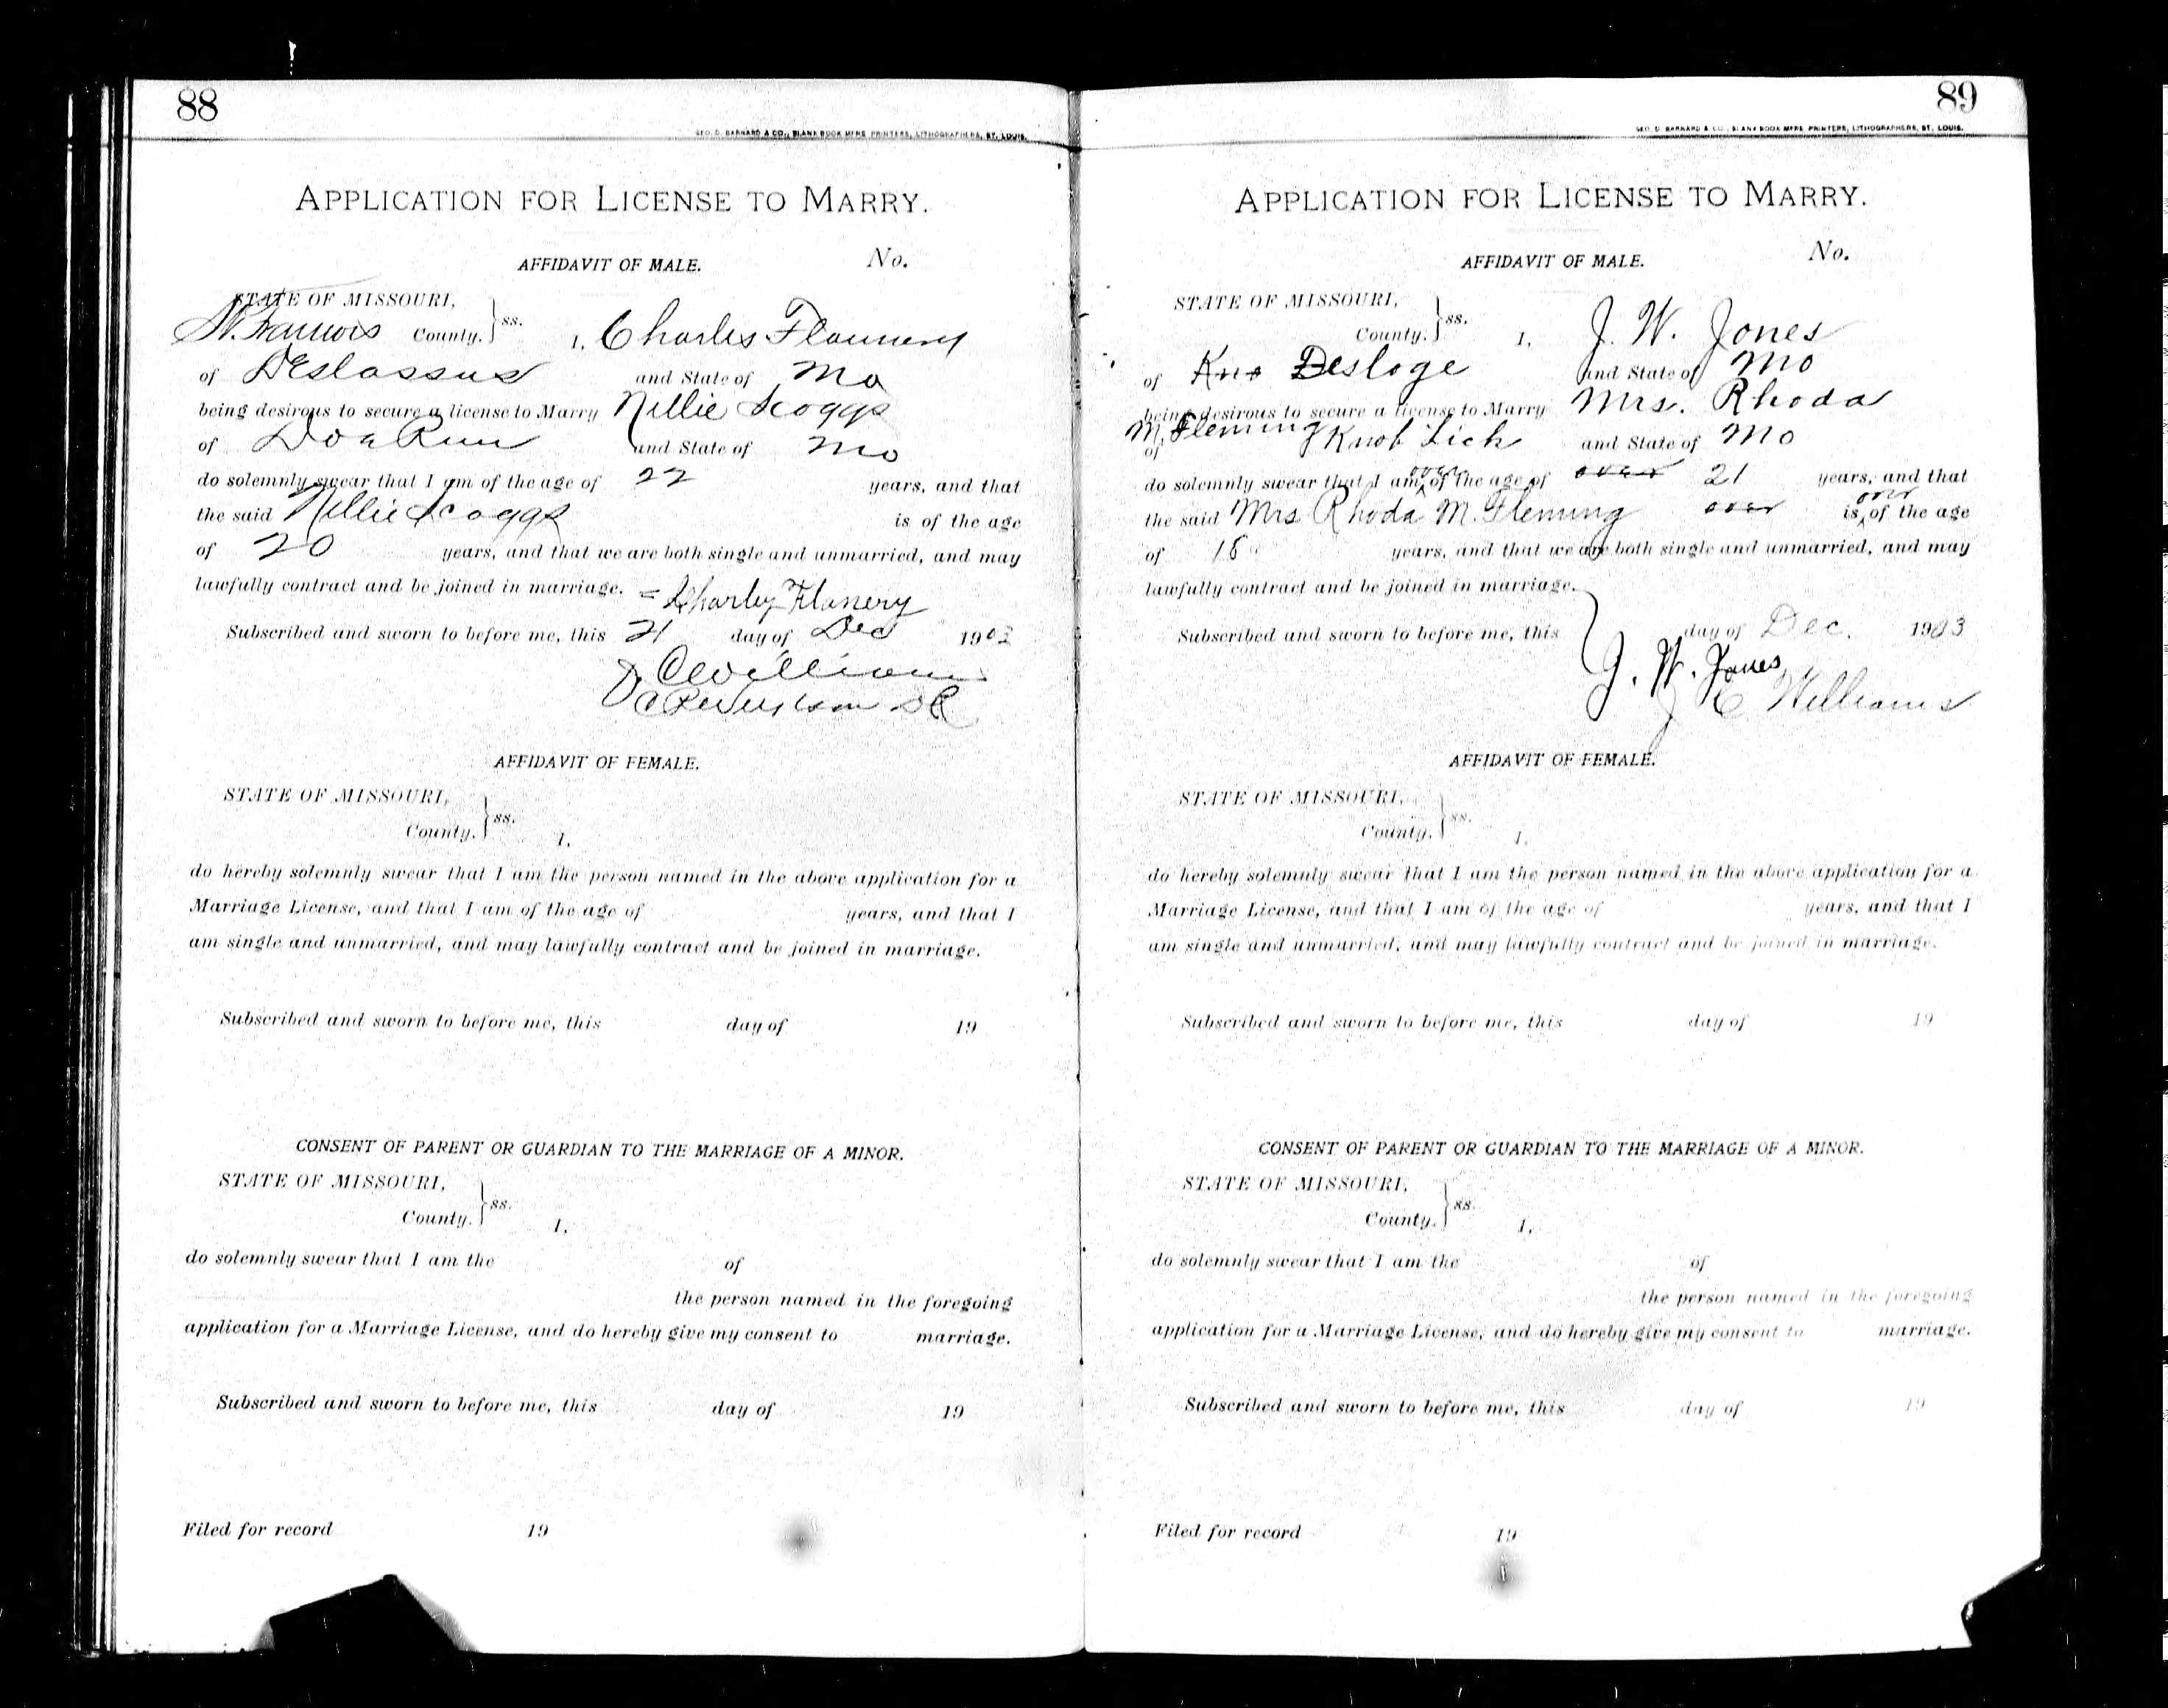 88
GEO. D. BARNARD & CO., BLANK BOOK MFRS. PRINTERS, LITHOGRAPHERS, ST. LOUIS.
APPLICATION FOR LICENSE TO MARRY.
AFFIDAVIT OF MALE. No.
STATE OF MISSOURI,
St. Francois County. } ss. I, Charles Flannery
of DeLassus and State of Mo
being desirous to secure a license to Marry Nellie Scoggs
of Doe Run and State of Mo
do solemnly swear that I am of the age of 22 years, and that
the said Nellie Scoggs is of the age
of 20 years, and that we are both single and unmarried, and may
lawfully contract and be joined in marriage. = Charley Flanery
Subscribed and sworn to before me, this 21 day of Dec 1903
Williams
AFFIDAVIT OF FEMALE.
STATE OF MISSOURI,
County. } ss. I,
do hereby solemnly swear that I am the person named in the above application for a
Marriage License, and that I am of the age of years, and that I
am single and unmarried, and may lawfully contract and be joined in marriage.
Subscribed and sworn to before me, this day of 19
CONSENT OF PARENT OR GUARDIAN TO THE MARRIAGE OF A MINOR.
STATE OF MISSOURI,
County. } ss. I,
do solemnly swear that I am the of
the person named in the foregoing
application for a Marriage License, and do hereby give my consent to marriage.
Subscribed and sworn to before me, this day of 19
Filed for record 19
89
GEO. D. BARNARD & CO., BLANK BOOK MFRS. PRINTERS, LITHOGRAPHERS, ST. LOUIS.
APPLICATION FOR LICENSE TO MARRY.
AFFIDAVIT OF MALE. No.
STATE OF MISSOURI,
County. } ss. I, J. W. Jones
of Kno Desloge and State of Mo
being desirous to secure a license to Marry Mrs. Rhoda
M. Fleming
of Knob Lick and State of Mo
do solemnly swear that I am over of the age of over 21 years, and that
the said Mrs Rhoda M. Fleming over is over of the age
of 18 years, and that we are both single and unmarried, and may
lawfully contract and be joined in marriage.
Subscribed and sworn to before me, this day of Dec. 1903
J. W. Jones
J C Williams
AFFIDAVIT OF FEMALE.
STATE OF MISSOURI,
County. } ss. I,
do hereby solemnly swear that I am the person named in the above application for a
Marriage License, and that I am of the age of years, and that I
am single and unmarried, and may lawfully contract and be joined in marriage.
Subscribed and sworn to before me, this day of 19
CONSENT OF PARENT OR GUARDIAN TO THE MARRIAGE OF A MINOR.
STATE OF MISSOURI,
County. } ss. I,
do solemnly swear that I am the of
the person named in the foregoing
application for a Marriage License, and do hereby give my consent to marriage.
Subscribed and sworn to before me, this day of 19
Filed for record 19